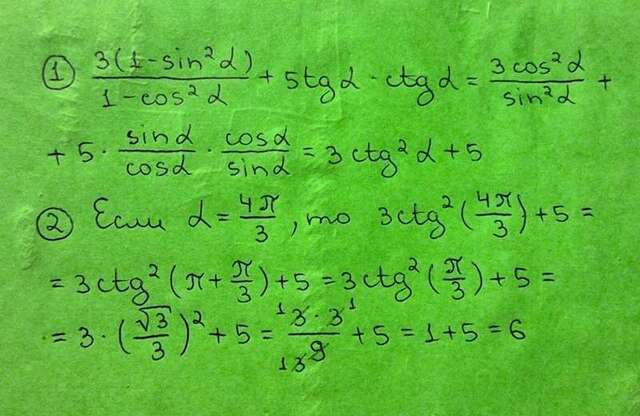 ① 3(1-sin²α)/(1-cos²α) + 5tgα · ctgα = 3cos²α/sin²α +
+ 5 · sinα/cosα · cosα/sinα = 3ctg²α + 5
② Если α = 4π/3, то 3ctg²(4π/3) + 5 =
= 3ctg²(π + π/3) + 5 = 3ctg²(π/3) + 5 =
= 3 · (√3/3)² + 5 = ¹3 · 3¹/₁3 9 + 5 = 1 + 5 = 6